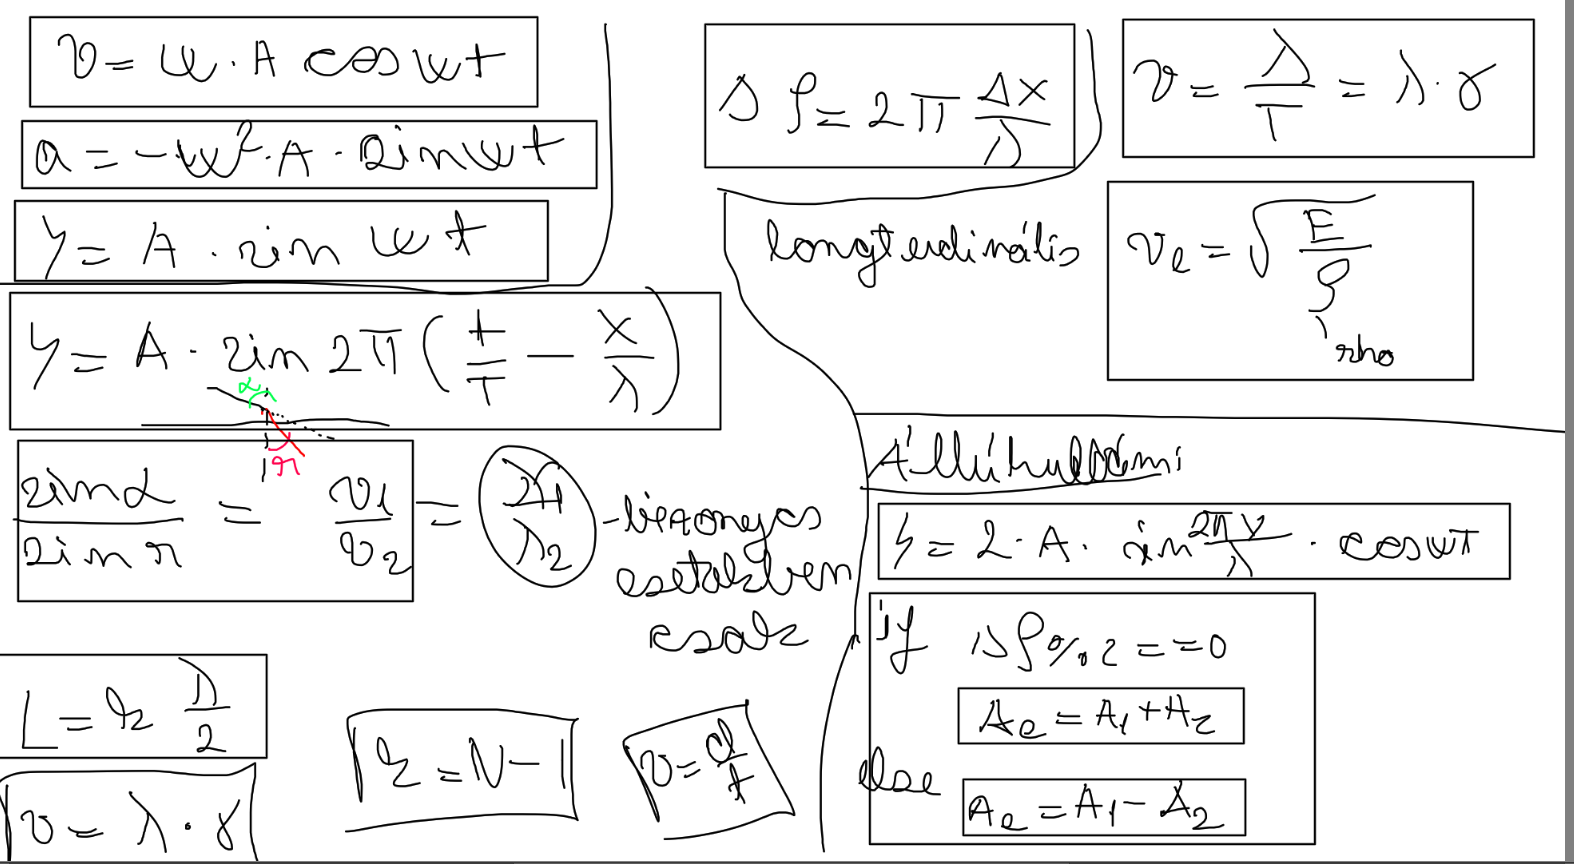 v = ω · A cos ωt
a = -ω² · A · sin ωt
y = A · sin ω t
y = A · sin 2π (t/T - x/λ)
α
r
sin α / sin r = v1/v2 = λ1/λ2 - bizonyos
esetekben
csak
L = k λ/2
v = λ · γ
k = N - 1
v = d/t
Δφ = 2π Δx/λ
v = λ/T = λ · γ
longitudinális
vₑ = √(E/ρ)
rho
Állúhullám:
y = 2 · A · sin 2πx/λ · cos ωt
if Δφ % 2 == 0
Aₑ = A₁ + A₂
else
Aₑ = A₁ - A₂